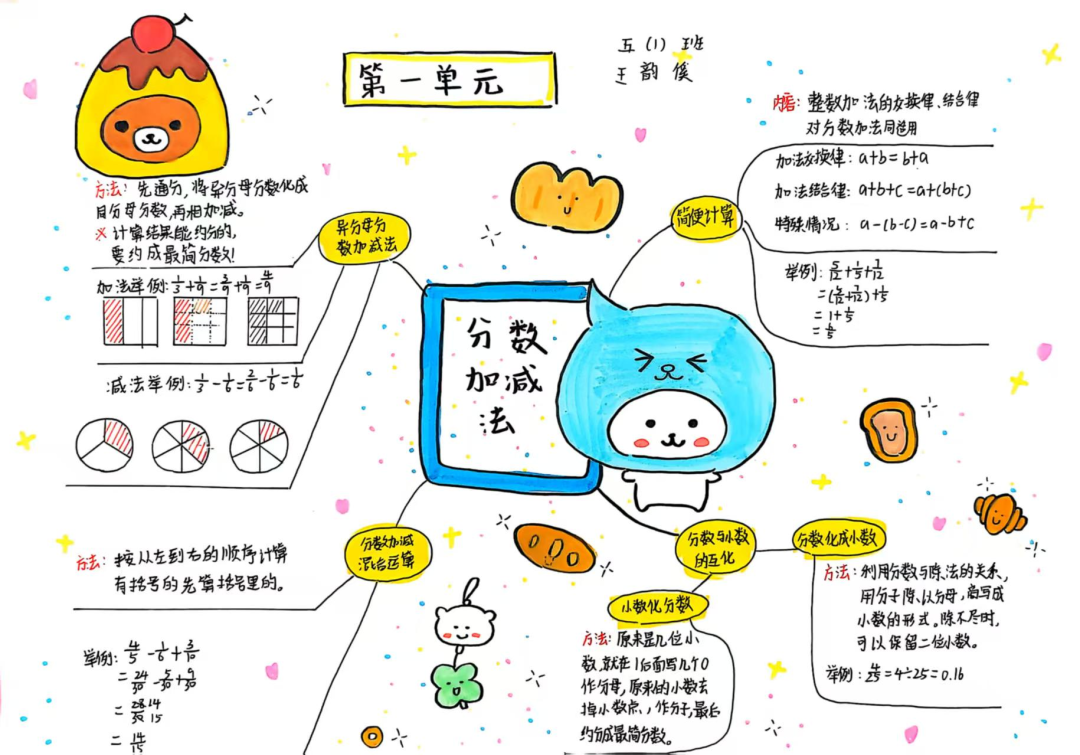 第一单元
五（1）班
王韵俟
分数
加减
法
异分母分
数加减法
方法：先通分，将异分母分数化成
同分母分数，再相加减。
※ 计算结果能约分的，
要约成最简分数！
加法举例：1/3+1/9=3/9+1/9=4/9
减法举例：1/3-1/6=2/6-1/6=1/6
分数加减
混合运算
方法：按从左到右的顺序计算
有括号的先算括号里的。
举例：4/5-1/6+3/10
=24/30-5/30+9/30
=28/30 14/15
=14/15
简便计算
内容：整数加法的交换律、结合律
对分数加法同适用
加法交换律：a+b=b+a
加法结合律：a+b+c=a+(b+c)
特殊情况：a-(b-c)=a-b+c
举例：5/12+1/5+7/12
=(5/12+7/12)+1/5
=1+1/5
=6/5
分数与小数
的互化
分数化成小数
方法：利用分数与除法的关系，
用分子除以分母，商写成
小数的形式。除不尽时，
可以保留二位小数。
举例：4/25=4÷25=0.16
小数化分数
方法：原来是几位小
数，就在1后面写几个0
作分母，原来的小数去
掉小数点，作分子，最后
约分成最简分数。